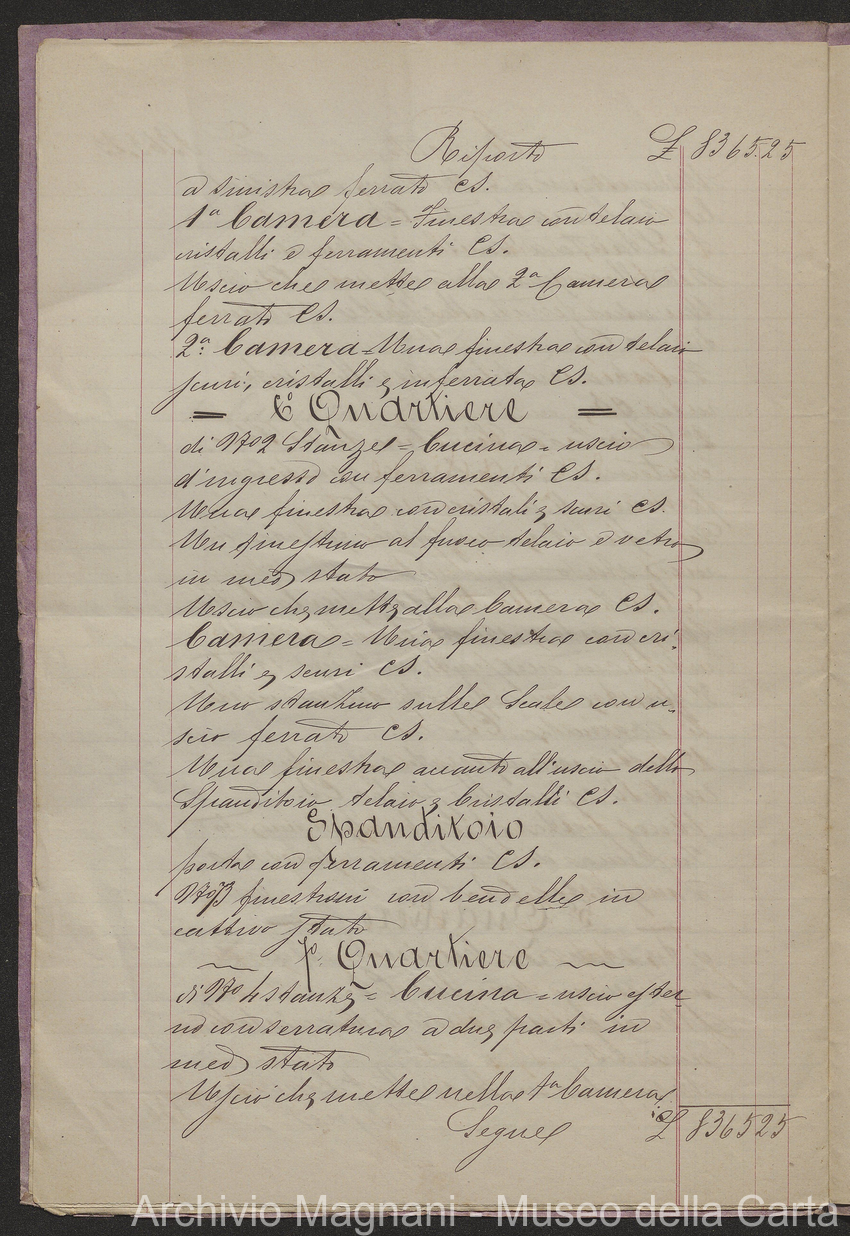 Riporto £ 8365.25
a sinistra ferrato CS.
1ª Camera = Finestra con telaio
cristalli e ferramenti CS.
Uscio che mette alla 2ª Camera
ferrato CS.
2ª: Camera = Una finestra con telaio
scuri, cristalli e inferrata CS.
= 6º Quartiere =
di Nº 2 Stanze = Cucina = uscio
d'ingresso con ferramenti CS.
Una finestra con cristali e scuri CS.
Un finestrino al fuoco telaio e vetro
in med stato
Uscio che mette alla Camera CS.
Camera = Una finestra con cri-
stalli e scuri CS.
Uno stanzino sulle Scale con u-
scio ferrato CS.
Una finestra accanto all'uscio dello
Spanditoio, telaio e Cristalli CS.
Spanditoio
porta con ferramenti CS.
Nº 13 finestroni con bendelle in
cattivo stato
~ 7º Quartiere ~
di Nº 4 stanze = Cucina = uscio ester-
no con serratura a due parti in
med stato
Uscio che mette nella 1ª Camera
Segue £ 8365.25
Archivio Magnani - Museo della Carta